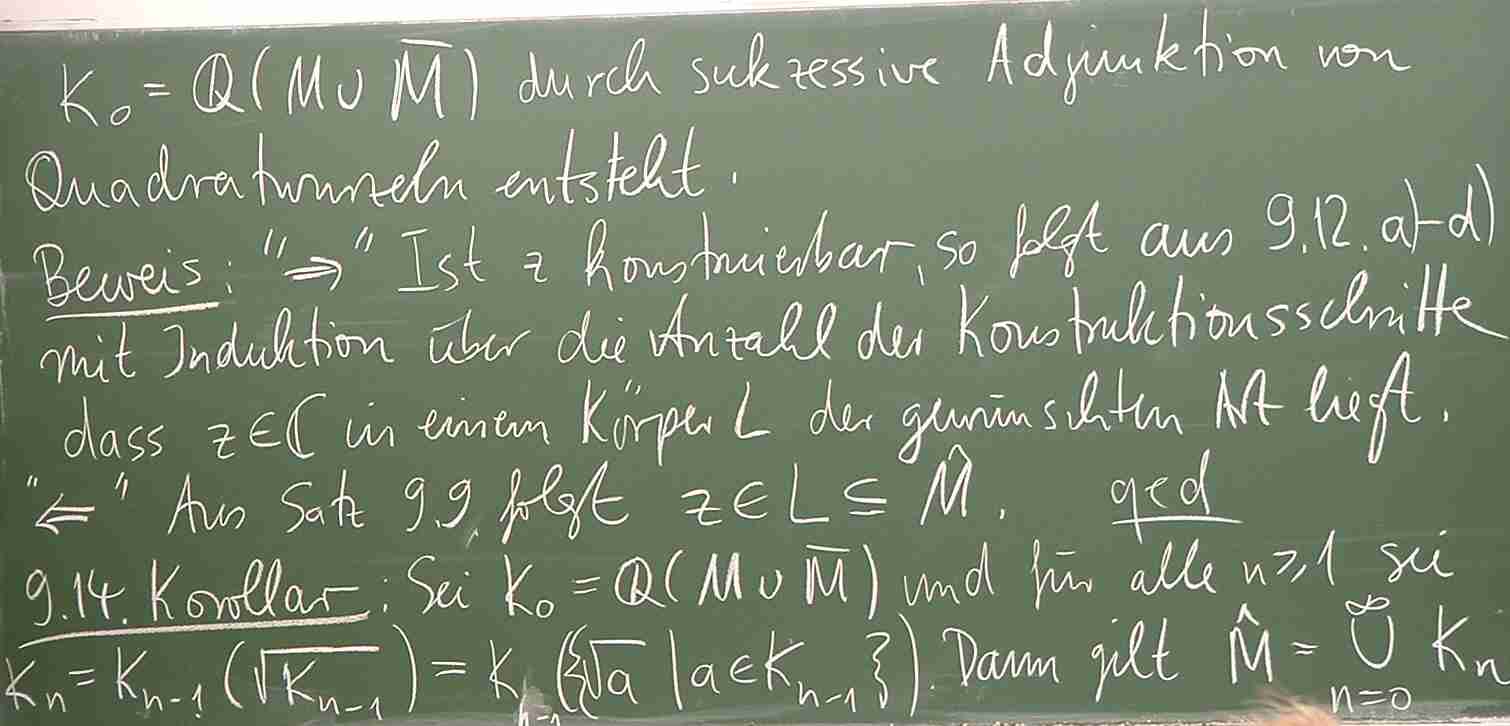 K₀ = ℚ(M ∪ M̅) durch sukzessive Adjunktion von
Quadratwurzeln entsteht.
Beweis: "⇒" Ist z konstruierbar, so folgt aus 9.12. a)-d)
mit Induktion über die Anzahl der Konstruktionsschritte
dass z∈ℂ in einem Körper L der gewünschten Art liegt.
"⇐" Aus Satz 9.9. folgt z ∈ L ⊆ M̂. qed
9.14. Korollar: Sei K₀ = ℚ(M ∪ M̅) und für alle n ≥ 1 sei
Kₙ = Kₙ₋₁(√Kₙ₋₁) = Kₙ₋₁({√a | a∈Kₙ₋₁}). Dann gilt M̂ = ∞⋃n=0 Kₙ